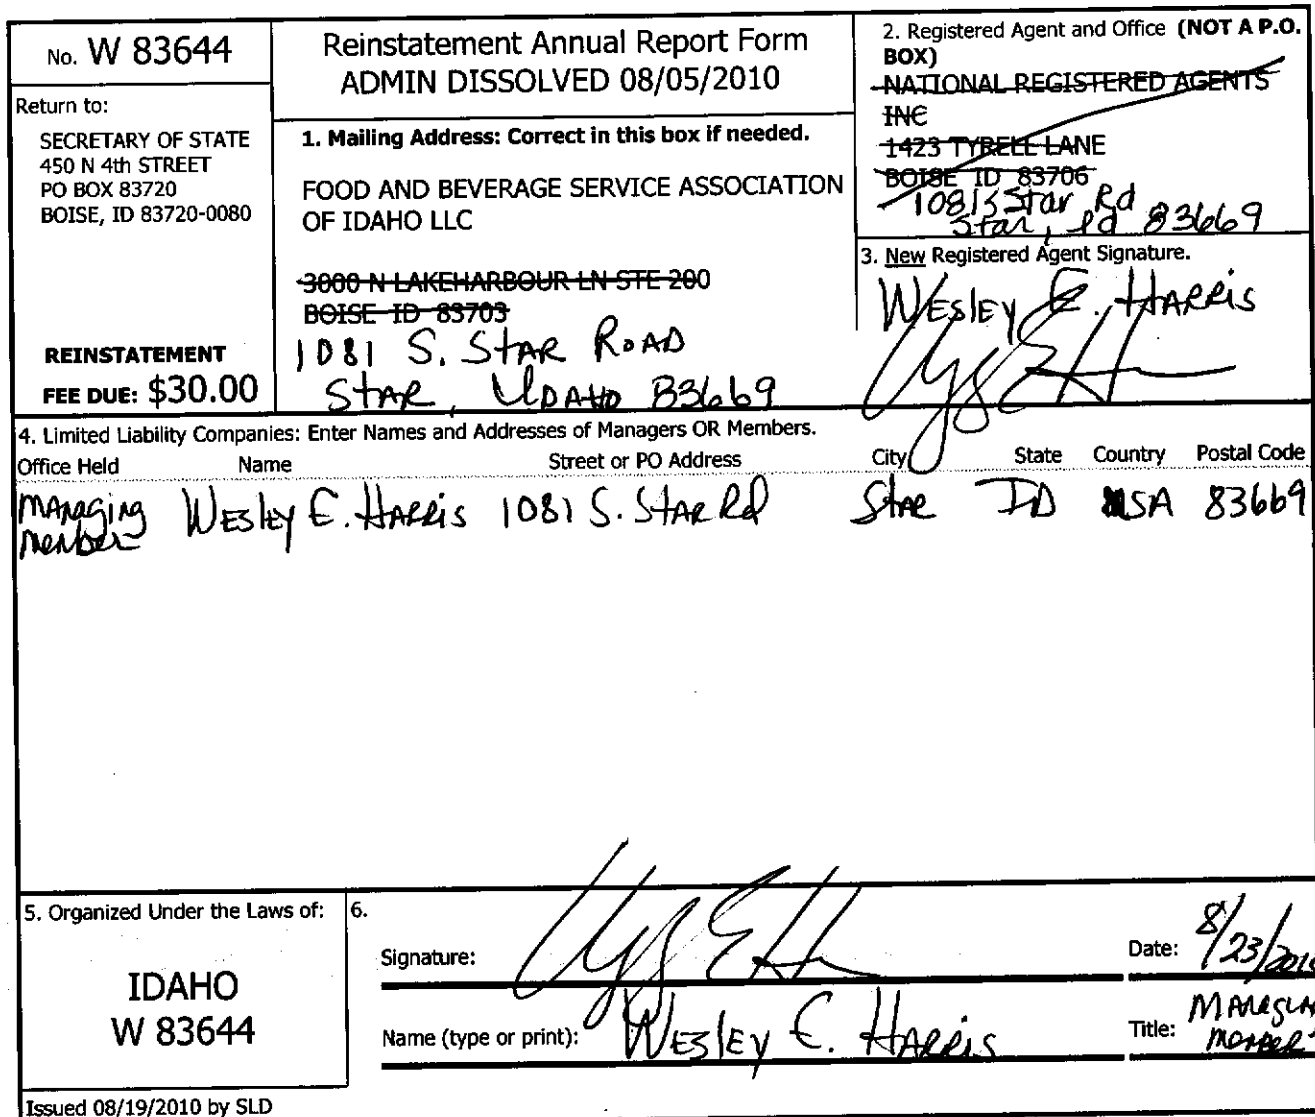 No. W 83644
Return to:
SECRETARY OF STATE
450 N 4th STREET
PO BOX 83720
BOISE, ID 83720-0080
REINSTATEMENT
FEE DUE: $30.00
Reinstatement Annual Report Form
ADMIN DISSOLVED 08/05/2010
1. Mailing Address: Correct in this box if needed.
FOOD AND BEVERAGE SERVICE ASSOCIATION
OF IDAHO LLC
3000 N LAKEHARBOUR LN STE 200
BOISE ID 83703
1081 S. STAR ROAD
STAR, IDAHO 83669
2. Registered Agent and Office (NOT A P.O.
BOX)
NATIONAL REGISTERED AGENTS
INC
1423 TYRELL LANE
BOISE ID 83706
1081 S Star Rd
Star, Id 83669
3. New Registered Agent Signature.
WESLEY E. HARRIS
4. Limited Liability Companies: Enter Names and Addresses of Managers OR Members.
Office Held Name Street or PO Address City State Country Postal Code
Managing WESLEY E. HARRIS 1081 S. STAR Rd STAR ID USA 83669
Member
5. Organized Under the Laws of:
IDAHO
W 83644
6.
Signature:
Date: 8/23/2010
Name (type or print): WESLEY E. HARRIS
Title: Managing
Member
Issued 08/19/2010 by SLD